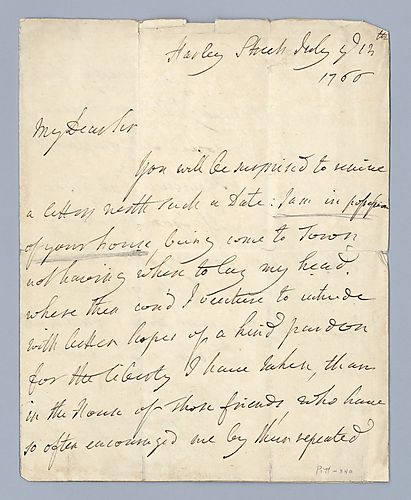 Harley Street July ye 12th
1766
My Dear Sir
You will be surprised to receive
a letter with such a Date: I am in possession
of your house being come to Town
not having where to lay my head.
where then cou'd I venture to intrude
with better hopes of a kind pardon
for the liberty I have taken, than
in the House of those friends, who have
so often encouraged me by their repeated